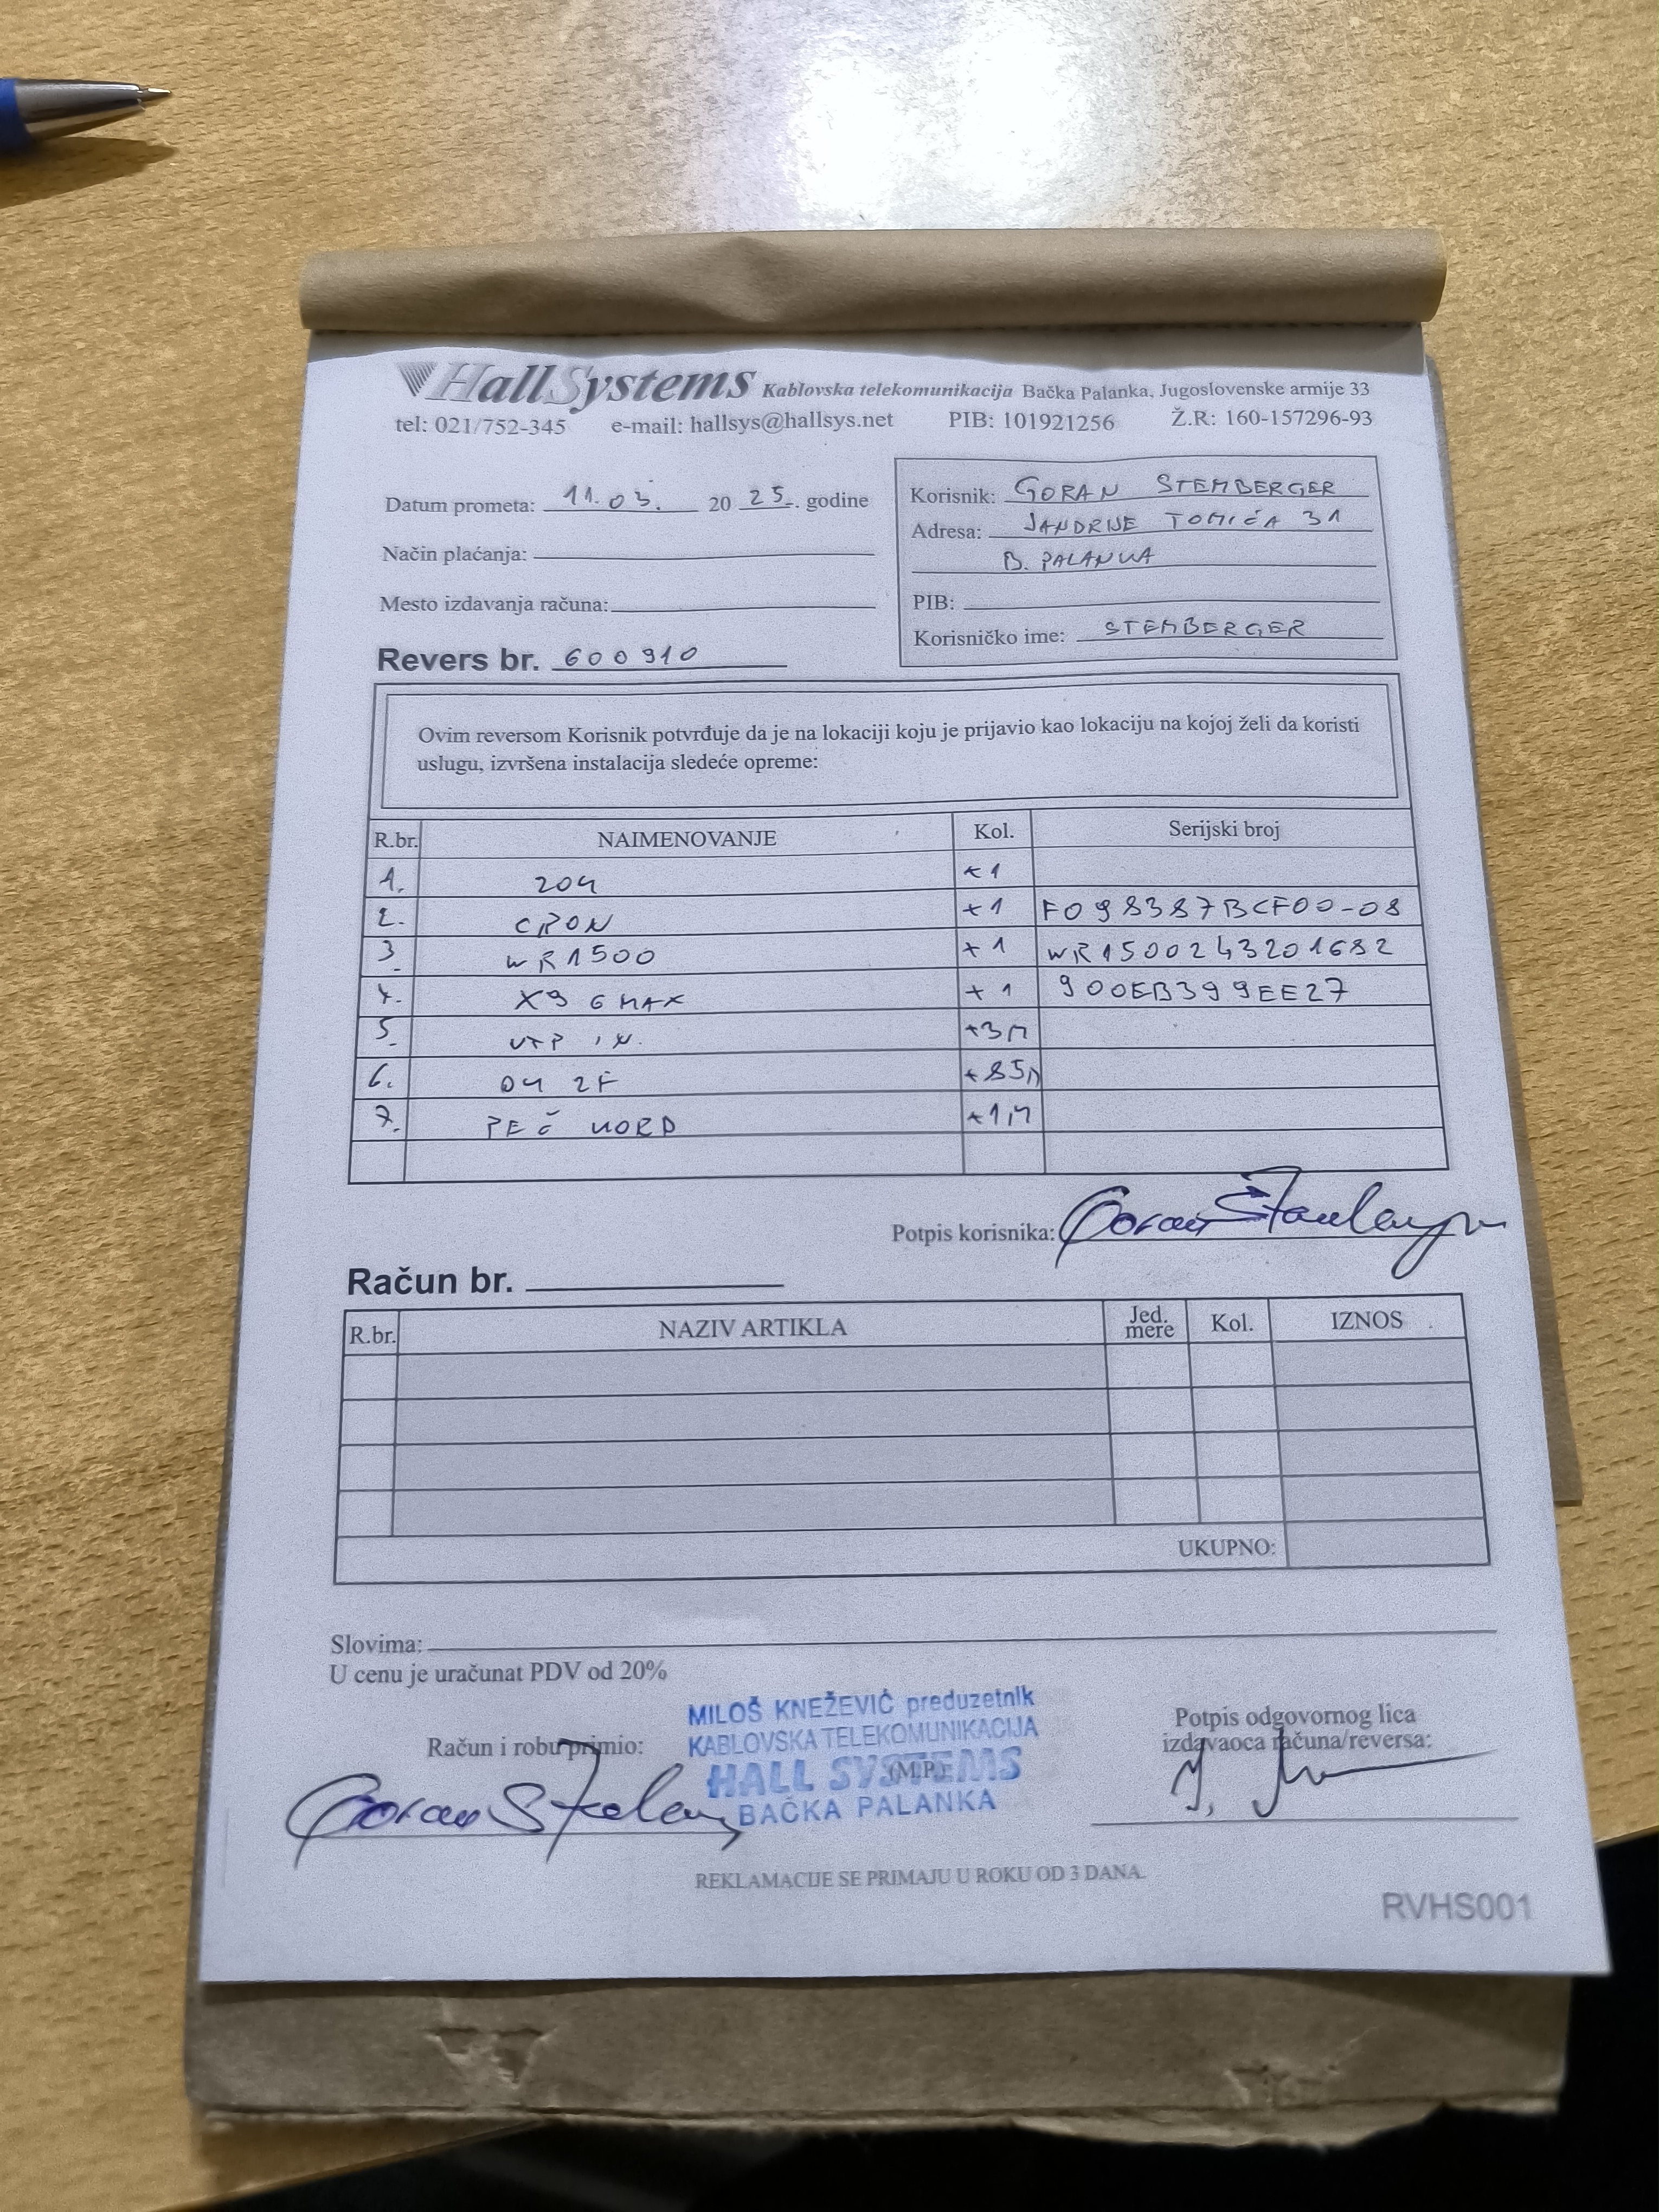 HallSystems Kablovska telekomunikacija Bačka Palanka, Jugoslovenske armije 33
tel: 021/752-345 e-mail: hallsys@hallsys.net PIB: 101921256 Ž.R: 160-157296-93
Datum prometa: 11.03. 20 25. godine
Način plaćanja:
Mesto izdavanja računa:
Revers br. 600910
Korisnik: GORAN STEMBERGER
Adresa: JANDRIJE TOMIĆA 31
B. PALANKA
PIB:
Korisničko ime: STEMBERGER
Ovim reversom Korisnik potvrđuje da je na lokaciji koju je prijavio kao lokaciju na kojoj želi da koristi
uslugu, izvršena instalacija sledeće opreme:
R.br. NAIMENOVANJE Kol. Serijski broj
1. 204 +1
2. CPON +1 F098387BCF00-08
3. WR1500 +1 WR1500243201682
4. X9 6 MAX +1 900EB399EE27
5. UTP +3M
6. 2F +85M
7. +1M
Potpis korisnika: Goran
Račun br.
R.br. NAZIV ARTIKLA Jed. mere Kol. IZNOS
UKUPNO:
Slovima:
U cenu je uračunat PDV od 20%
Račun i robu primio: Goran
MILOŠ KNEŽEVIĆ preduzetnik
KABLOVSKA TELEKOMUNIKACIJA
HALL SYSTEMS
(M.P.)
BAČKA PALANKA
Potpis odgovornog lica
izdavaoca računa/reversa:
REKLAMACIJE SE PRIMAJU U ROKU OD 3 DANA.
RVHS001